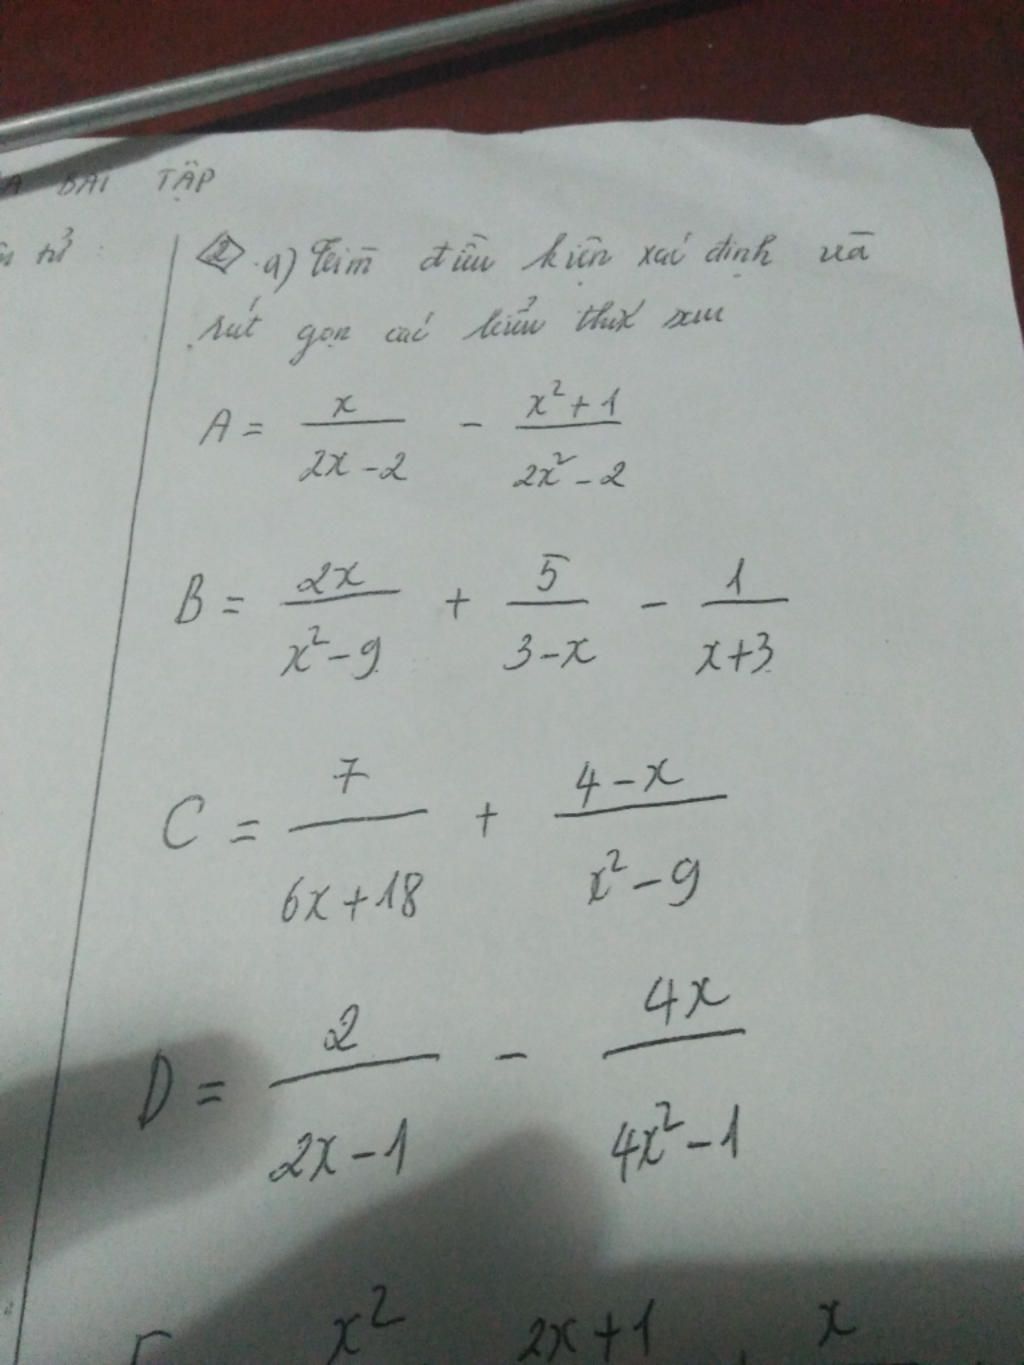 BÀI TẬP
tử :
② a) Tìm điều kiện xác định và
rút gọn các biểu thức sau
A = x/(2x - 2) - (x² + 1)/(2x² - 2)
B = 2x/(x² - 9) + 5/(3 - x) - 1/(x + 3)
C = 7/(6x + 18) + (4 - x)/(x² - 9)
D = 2/(2x - 1) - 4x/(4x² - 1)
x² 2x + 1 x